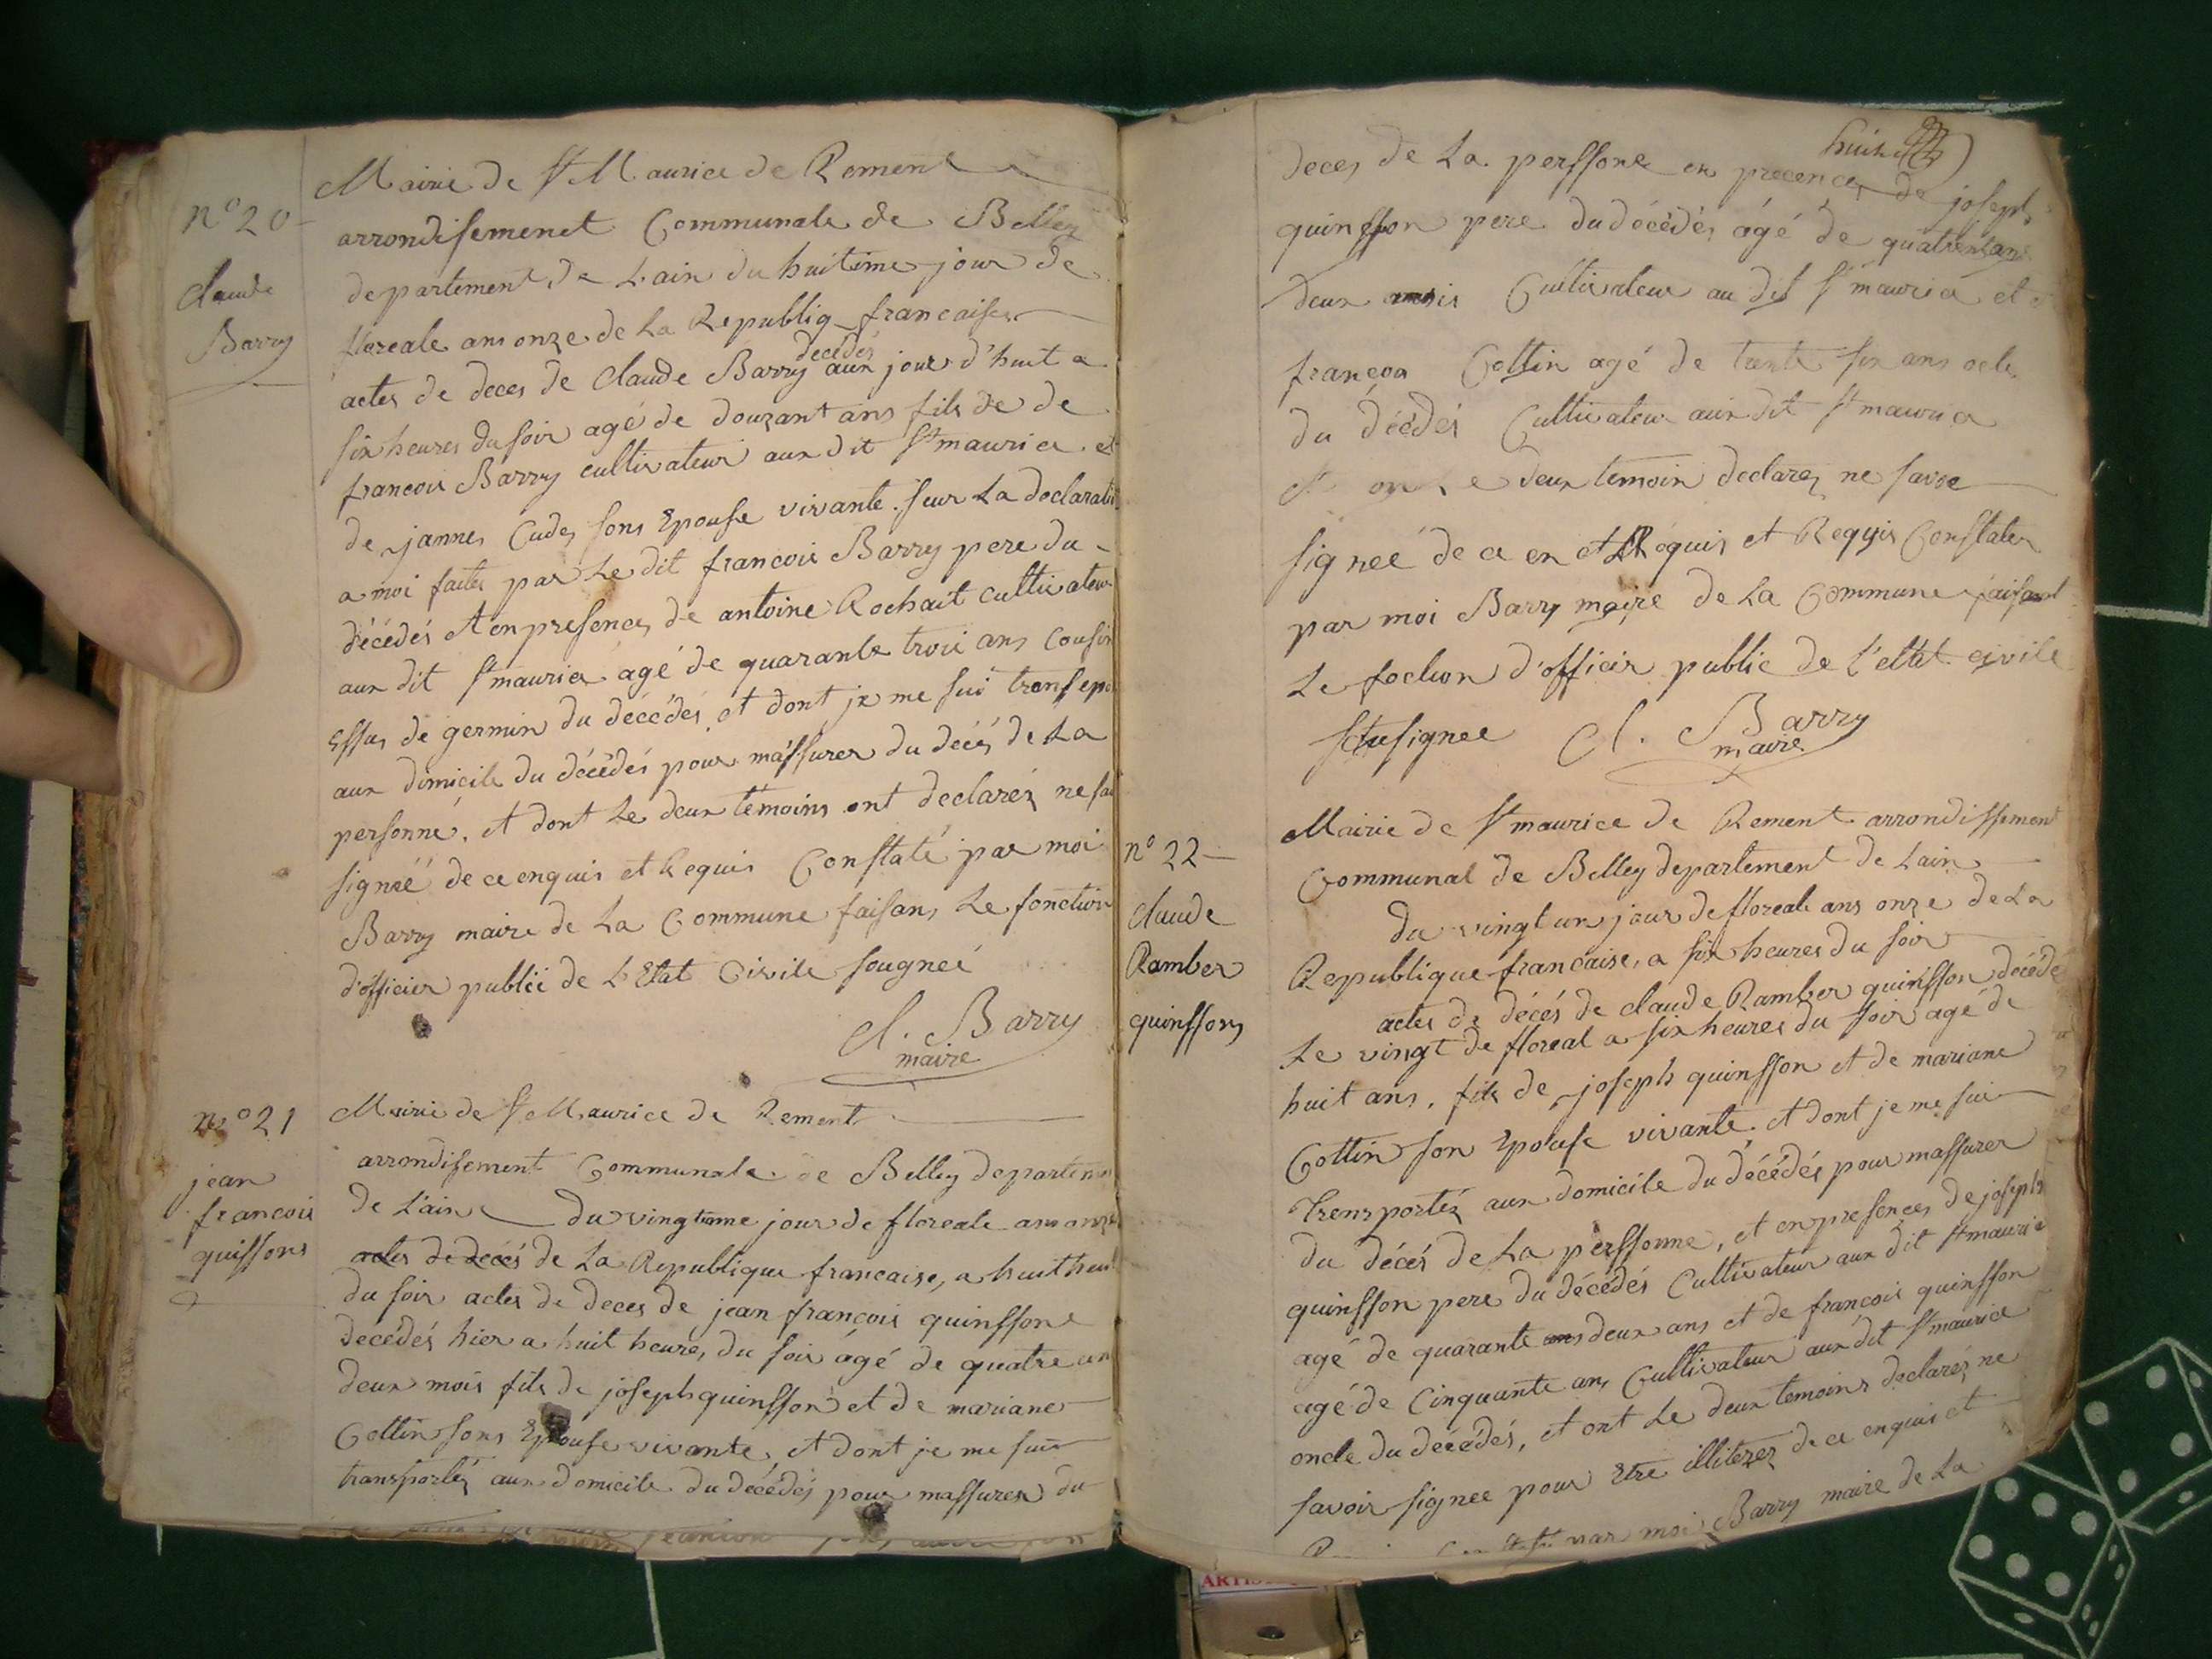 n° 20
claude
Barry
Mairie de St Maurice de Rement
arrondisement Communale de Belley
departement de L'ain du huitime jour de
floreale ans onze de La Republiq francaise
decédés
actes de deces de Claude Barry aux jour d'huit a
six heures du soir agé de douzant ans fils de de
francois Barry cultivateur aux dit St maurice et
de jannes Cudes sons Epouse vivante. sur La declarati
a moi faites par Le dit francois Barry pere du
décédés et en presences de antoine Rochait cultivateur
aux dit St maurice agé de quarante trois ans Cousin
Essus de germin du décédés et dont je me sui transepo
aux dimicile du décédés pour m'assurer du décés de La
personne, et dont Le deux témoins ont declaréz ne sa
signéé de ce enquis et Requis Constaté par moi
Barry maire de La Commune faisans Le fonction
d'officier publié de L'Etat Civile sougneé
Cl. Barry
maire
n° 21
jean
francois
quissons
Mairie de St Maurice de Rement
arrondisement Communale de Belley departem
de L'ain du vingtieme jour de floreale ans onze
actes de decés de La Republique francaise, a huit heur
du soir actes de deces de jean françois quinssone
decédés hier a huit heures du soir agé de quatre an
deux mois fils de joseph quinsson et de mariane
Cottin sons Epouse vivante, et dont je me suis
transportéz aux domicile du décédés pour massurer du
huit
deces de La perssone en precences de joseph
quinsson pere du décédés agé de quatrentans
deux Cultivateur au dit St maurice et
françoa Cottin agé de trente six ans ocle
du décédés Cultivateur aux dit St maurice
et on Le deux temoin declarez ne savoe
signeé de ce en et Requis et Requis Constater
par moi Barry maire de La Commune faisant
Le foction d'officier public de l'ettat civile
sousignee Cl. Barry
maire
n° 22
claude
Ramber
quinssons
Mairie de St maurice de Rement arrondissement
Communal de Belley departement de Lain
du vingt un jour de floreale ans onze de La
Republique francaise, a six heures du soir
actes de décés de claude Ramber quinsson décédé
Le vingt de floreal a six heures du soir agé de
huit ans, fils de joseph quinsson et de mariane
Cottin son Epouse vivante. et dont je me suis
Transportéz aux domicile du décédés pour massurer
du décés de La perssonne, et en presences de joseph
quinsson pere du décédés Cultivateur aux dit St maurice
agé de quarante ans deux ans et de francois quinsson
agé de Cinquante ans Cultivateur aux dit St maurice
oncle du décédés, et ont Le deux temoins declarés ne
savoir signee pour Etre illiterez de ce enquis et
par moi Barry maire de La